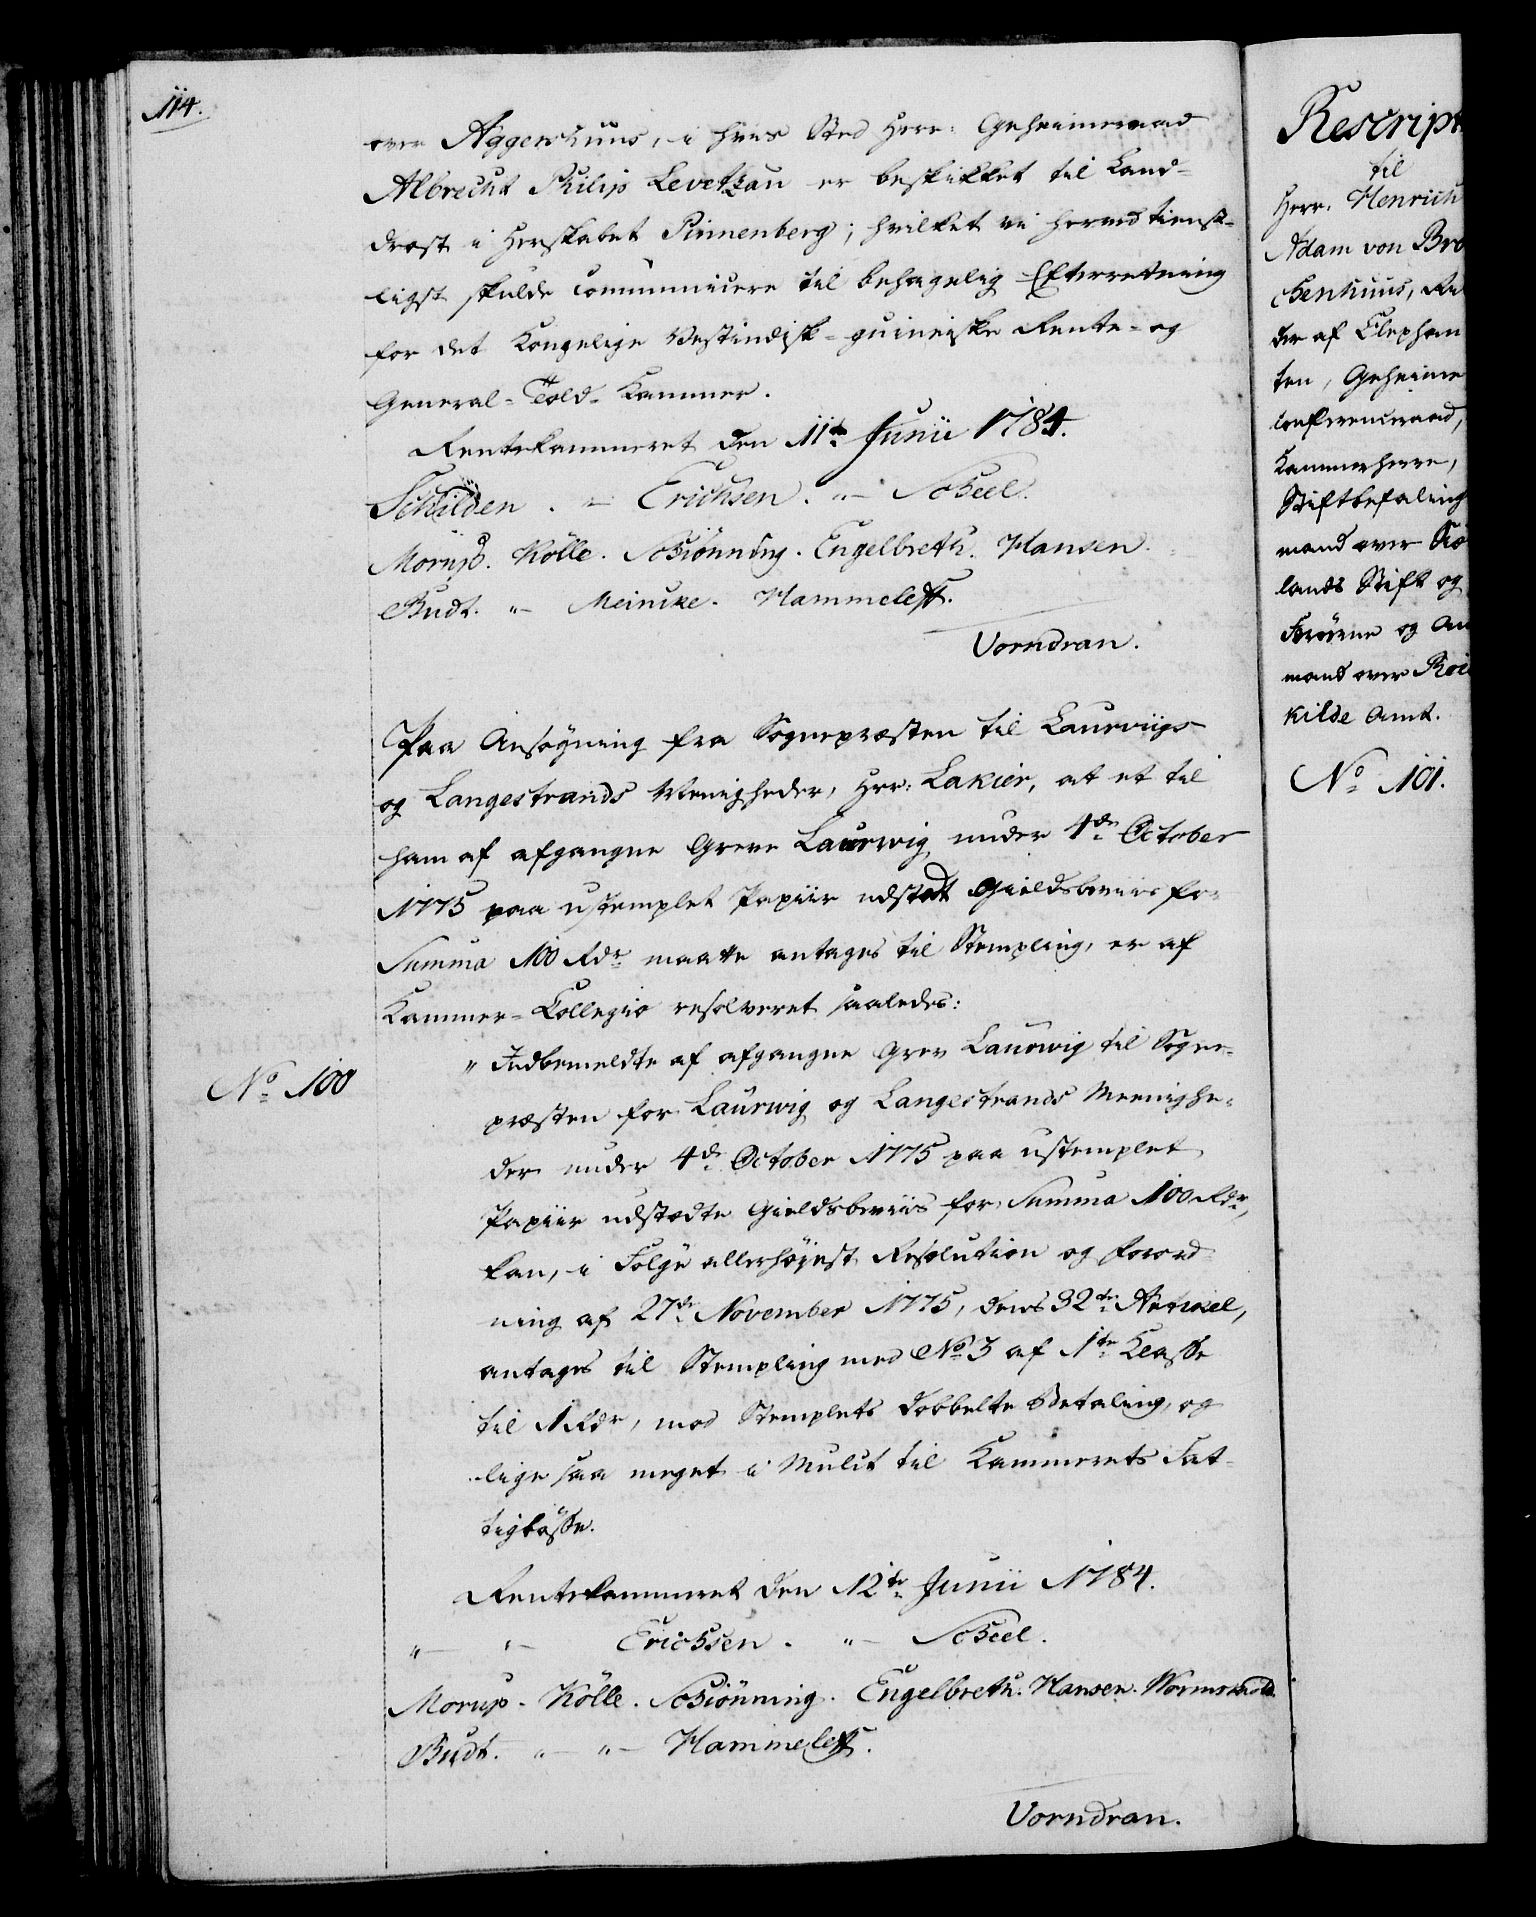 114.
over Aggershuus, i hvis Sted Herr: Geheimeraad
Albrecht Philip Levetzau er beskikket til Land-
drost i Herskabet Pinneberg; hvilket vi herved tienst-
ligst skulde communicere til behagelig Efterretning
for det Kongelige Vestindisk-guineiske Rente- og
General-Told-Kammer.
Rentekammeret den 11te Junii 1784.
Schilden. „ – Erichsen. „ – Scheel.
Morup. Kölle. Schiönning. Engelbreth. Hansen.
Budt. „ – Meincke. Hammeleff.
Vorndran.
Paa Ansøgning fra Sognepræsten til Laurviigs
og Langestrands Menigheder, Hr: Lakier, at et til
ham af afgangne Greve Laurwig under 4de October
1775 paa ustemplet Papiir udstædt Gieldsbeviis for
Summa 100 Rdr maatte antages til Stempling, er af
Kammer-Collegio resolveret saaledes:
No 100
„ Indbemeldte af afgangne Grev Laurwig til Sogne-
præsten for Laurwig og Langestrands Meenighe-
der under 4de October 1775 paa ustemplet
Papiir udstædte Gieldsbeviis for Summa 100 Rdr,
kan, i Følge allerhøjest Resolution og Forord-
ning af 27de November 1775, dens 32te Artikel,
antages til Stempling med No 3 af 1te Classe
til 1 Rdr, mod Stemplets dobbelte Betaling, og
lige saa meget i Mulct til Kammerets Fat-
tigbøsse.
Rentekammeret den 12te Junii 1784.
„ – „ – Erichsen. „ – Scheel.
Morup. Kölle. Schiönning. Engelbreth. Hansen. Wormskiold.
Budt. „ – „ – Hammeleff.
Vorndran.
Rescript
til
Herr: Henrich
Adam von Bro
chenhuus, Rid
der af Elephan
ten, Geheime
conferenceraad,
Kammerherre,
Stiftbefalings
mand over Siæ
lands Stift og
Færøerne og Amt
mand over Roes
kilde Amt.
No 101.